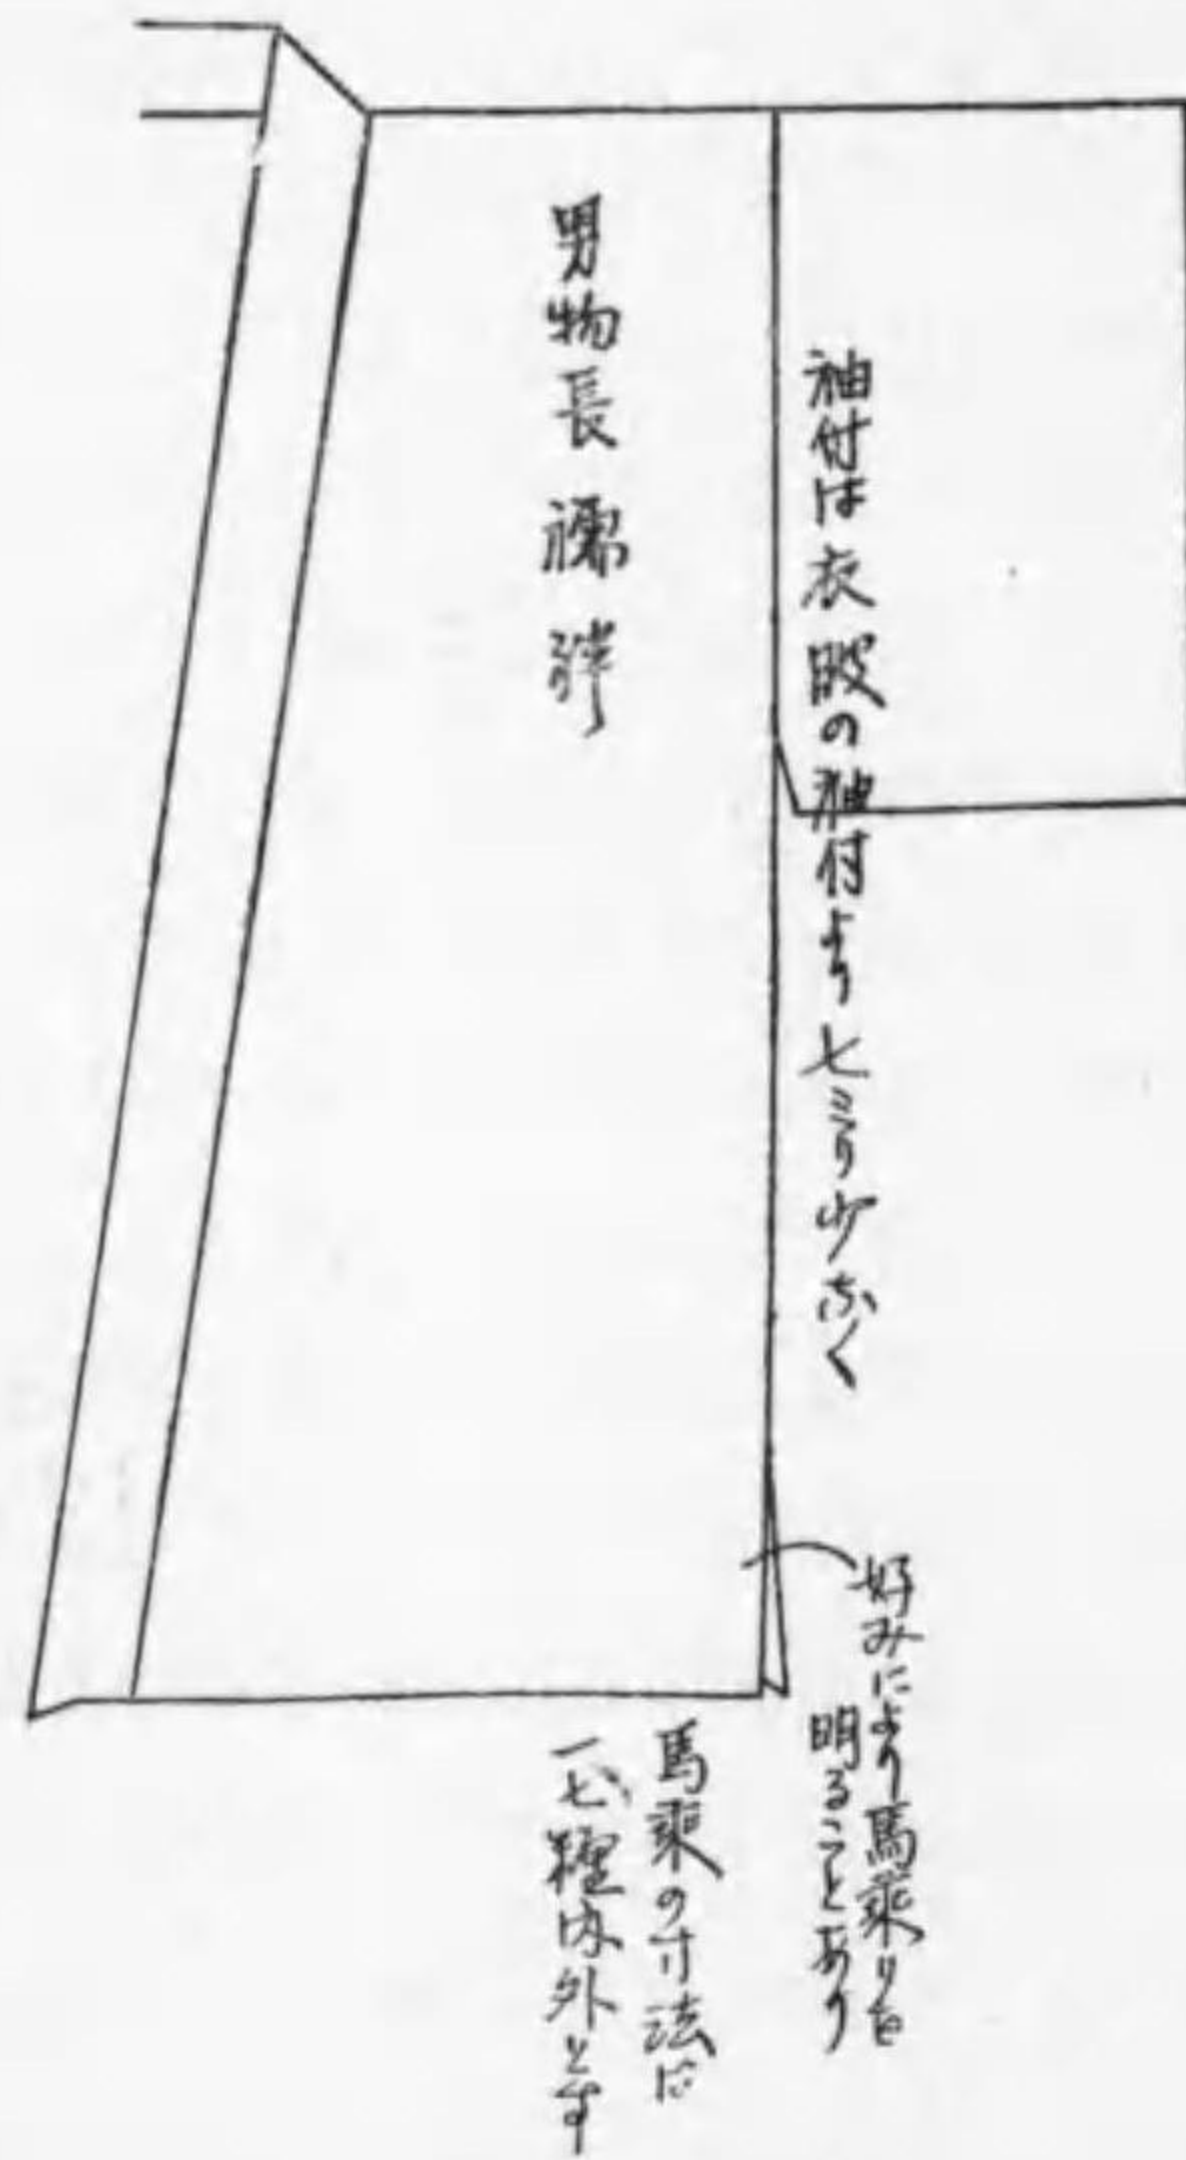 袖付は衣服の袖付より七ミリ少なく
男物長襦袢
好みにより馬乗りを
明ることあり
馬乗の寸法は
一七糎内外とす